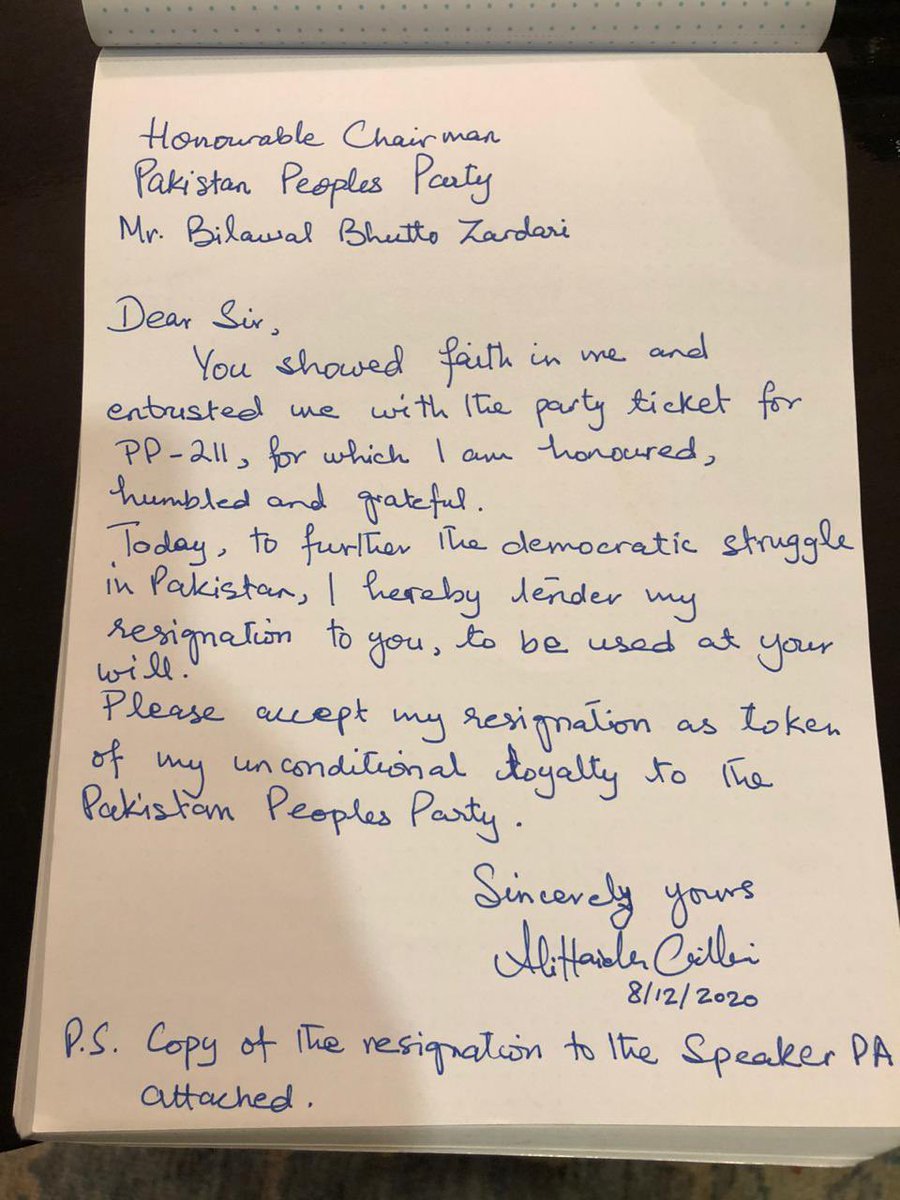 Honourable Chairman
Pakistan Peoples Party
Mr. Bilawal Bhutto Zardari
Dear Sir,
You showed faith in me and
entrusted me with the party ticket for
PP-211, for which I am honoured,
humbled and grateful.
Today, to further the democratic struggle
in Pakistan, I hereby tender my
resignation to you, to be used at your
will.
Please accept my resignation as token
of my unconditional loyalty to the
Pakistan Peoples Party.
Sincerely yours
Ali Haider Gillani
8/12/2020
P.S. Copy of the resignation to the Speaker PA
attached.